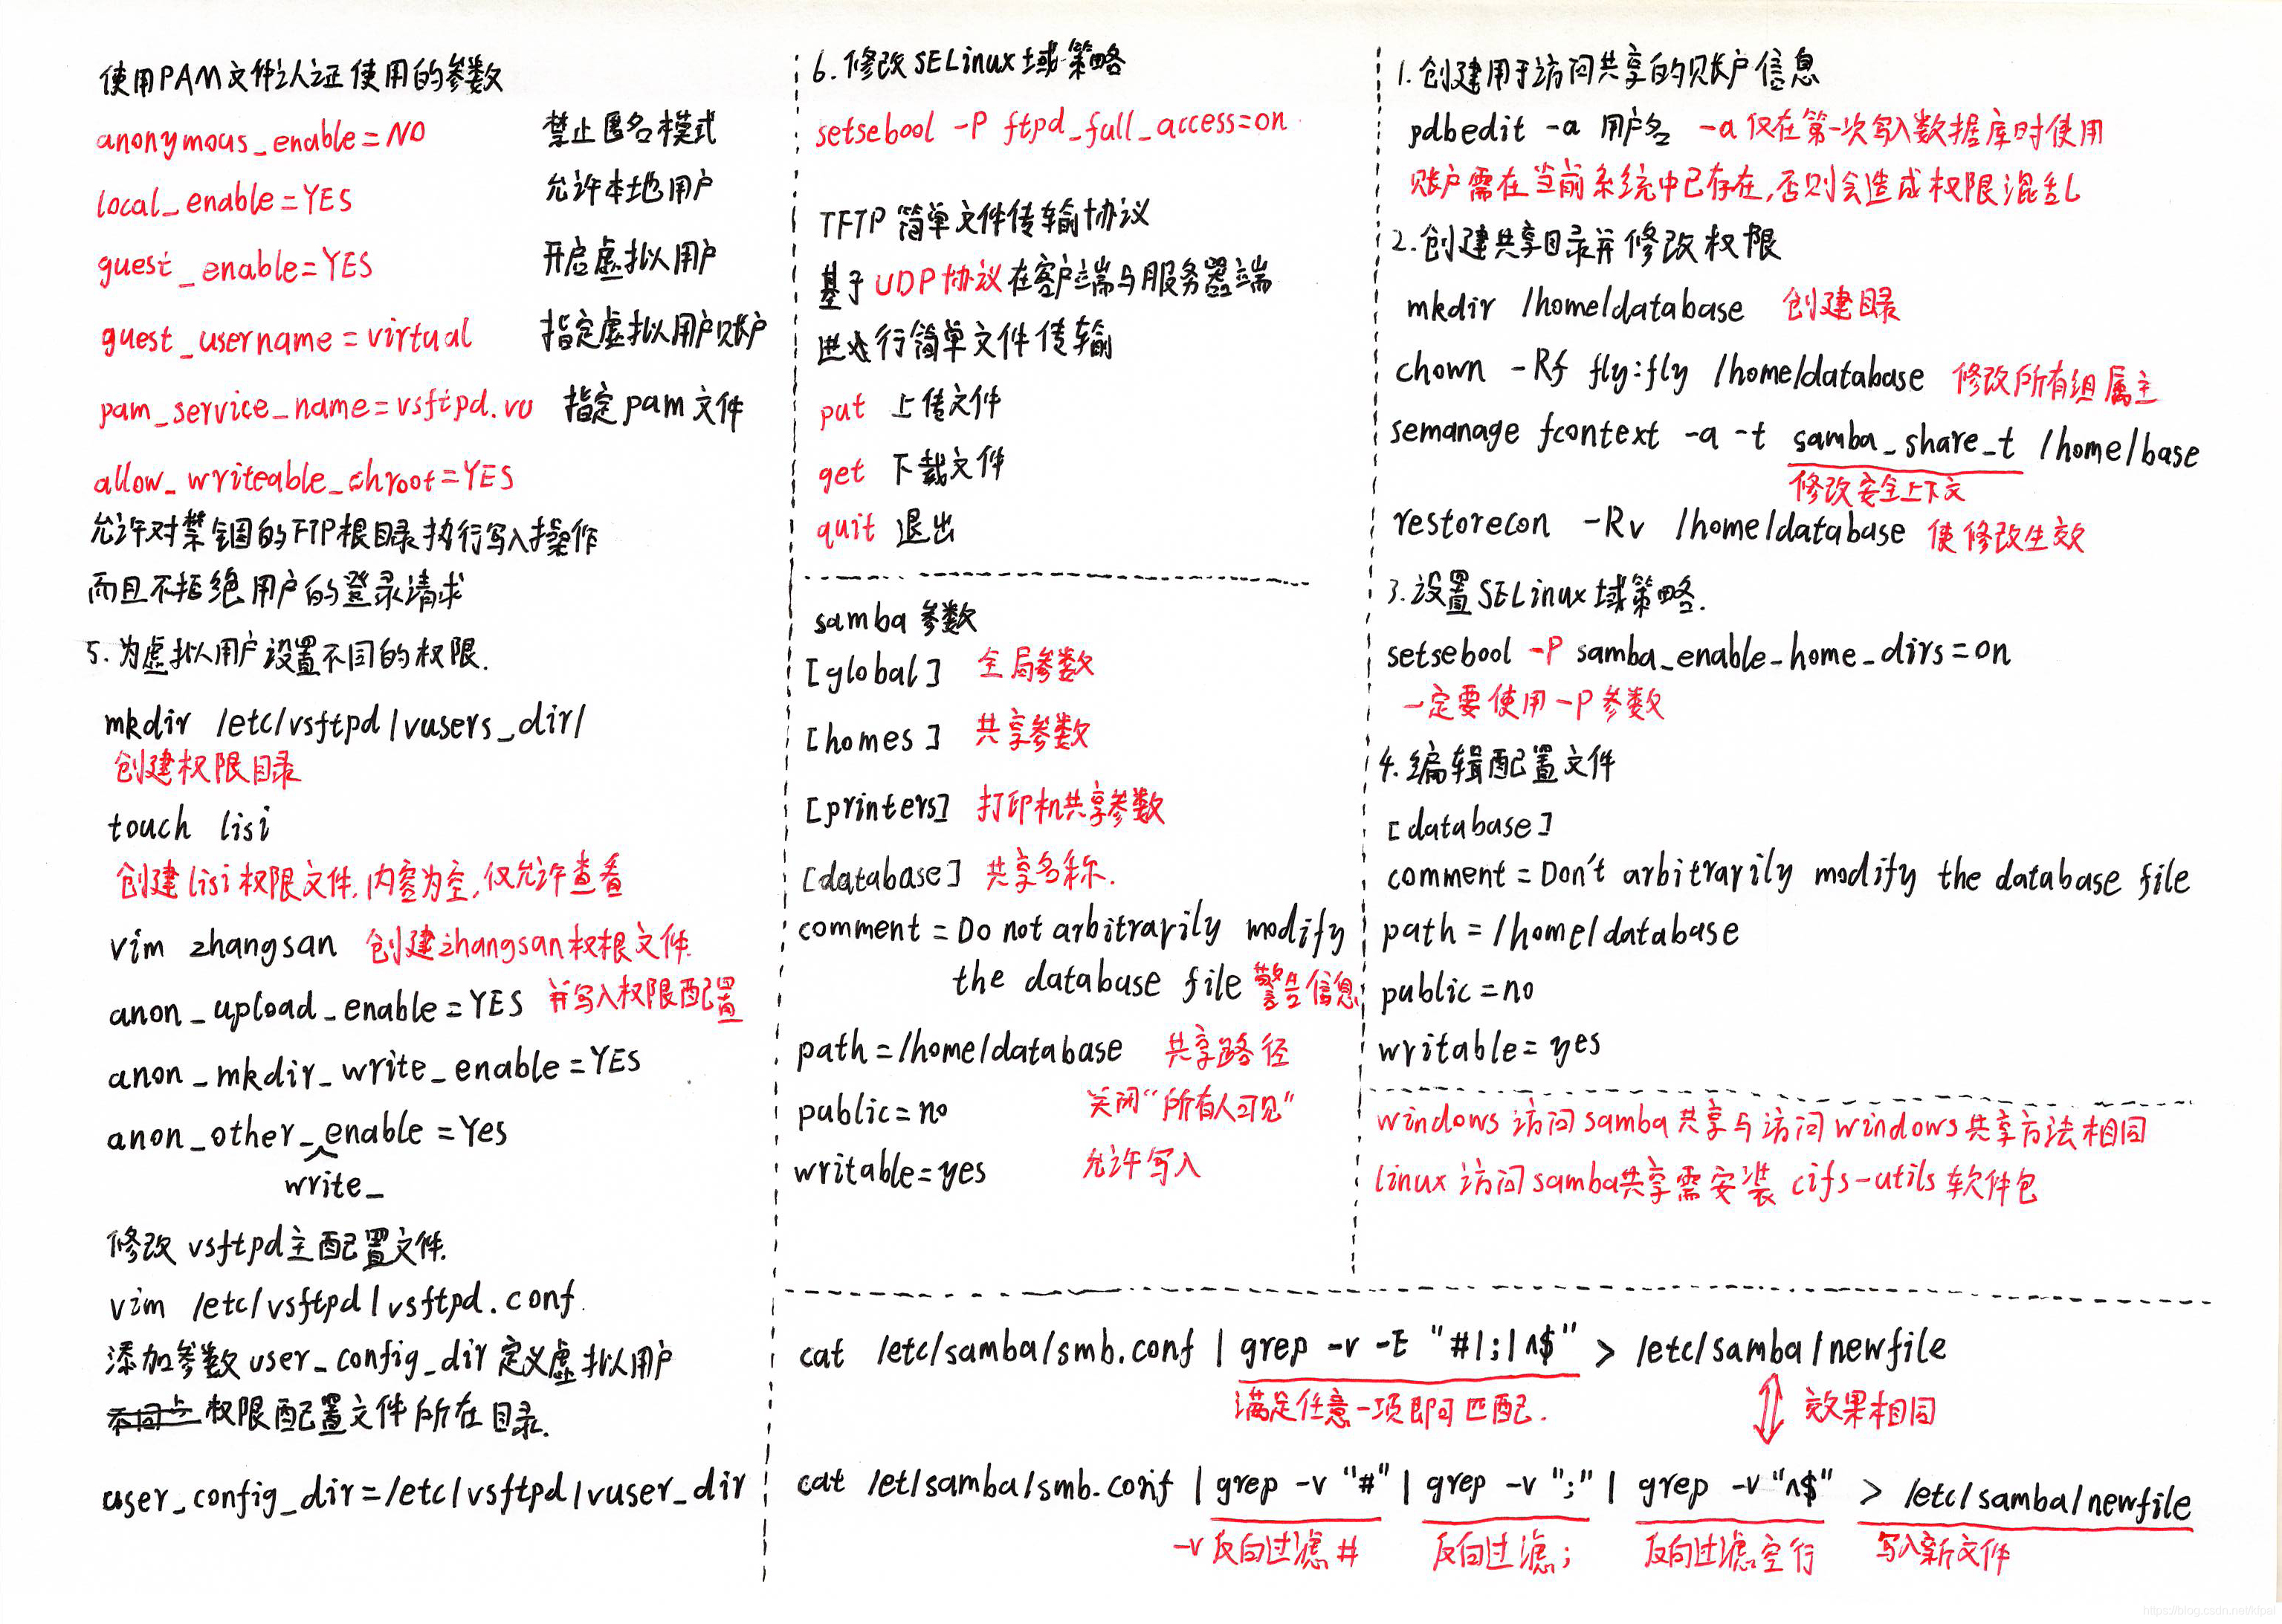 使用PAM文件认证使用的参数
anonymous_enable=NO 禁止匿名模式
local_enable=YES 允许本地用户
guest_enable=YES 开启虚拟用户
guest_username=virtual 指定虚拟用户账户
pam_service_name=vsftpd.vu 指定pam文件
allow_writeable_chroot=YES
允许对禁锢的FTP根目录执行写入操作
而且不拒绝用户的登录请求
5.为虚拟用户设置不同的权限.
mkdir /etc/vsftpd/vusers_dir/
创建权限目录
touch lisi
创建lisi权限文件,内容为空,仅允许查看
vim zhangsan 创建zhangsan权根文件.
anon_upload_enable=YES 并写入权限配置
anon_mkdir_write_enable=YES
anon_other_enable=Yes
write_
修改vsftpd主配置文件.
vim /etc/vsftpd/vsftpd.conf.
添加参数user_config_dir定义虚拟用户
权限配置文件所在目录.
user_config_dir=/etc/vsftpd/vuser_dir
6.修改SELinux域策略
setsebool -P ftpd_full_access=on
TFTP 简单文件传输协议
基于UDP协议在客户端与服务器端
进行简单文件传输
put 上传文件
get 下载文件
quit 退出
samba参数
[global] 全局参数
[homes] 共享参数
[printers] 打印机共享参数
[database] 共享名称.
comment=Do not arbitrarily modify
the database file 警告信息
path=/home/database 共享路径
public=no 关闭“所有人可见”
writable=yes 允许写入
1.创建用于访问共享的账户信息
pdbedit -a 用户名 -a仅在第一次写入数据库时使用
账户需在当前系统中已存在,否则会造成权限混乱
2.创建共享目录并修改权限
mkdir /home/database 创建目录
chown -Rf fly:fly /home/database 修改所有组属主
semanage fcontext -a -t samba_share_t /home/base
修改安全上下文
restorecon -Rv /home/database 使修改生效
3.设置SELinux域策略.
setsebool -P samba_enable_home_dirs=on
一定要使用-P参数
4.编辑配置文件
[database]
comment=Don't arbitrarily modify the database file
path=/home/database
public=no
writable=yes
windows访问samba共享与访问windows共享方法相同
linux访问samba共享需安装cifs-utils软件包
cat /etc/samba/smb.conf | grep -v -E "#|;|^$" > /etc/samba/newfile
满足任意一项即可匹配.
效果相同
cat /et/samba/smb.conf | grep -v "#" | grep -v ";" | grep -v "^$" > /etc/samba/newfile
-v反向过滤# 反向过滤; 反向过滤空行 写入新文件
https://blog.csdn.net/kfpsl